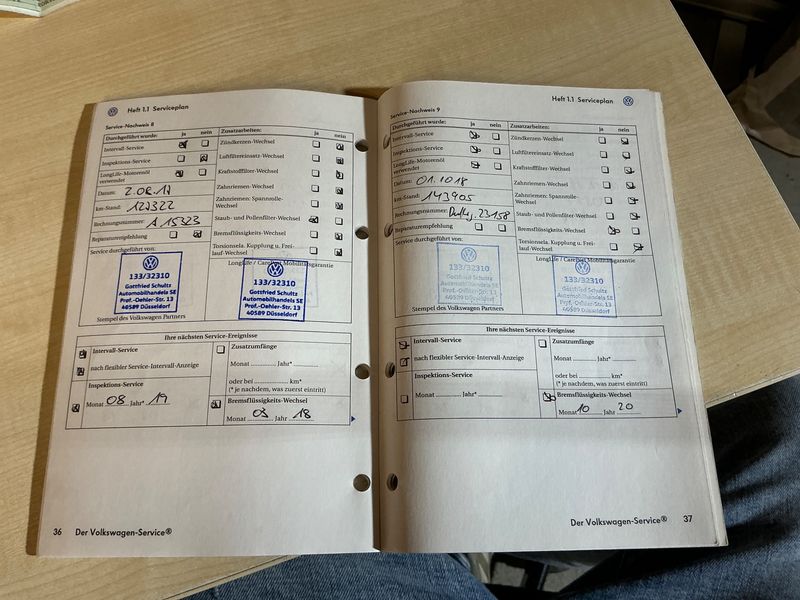 Heft 1.1 Serviceplan
Service-Nachweis 8
Durchgeführt wurde: ja nein
Intervall-Service
Inspektions-Service
LongLife-Motorenöl verwendet
Datum: 2.08.17
km-Stand:
Rechnungsnummer: A 15323
Reparaturempfehlung
Service durchgeführt von:
133/32310
Gottfried Schultz
Automobilhandels SE
Prof.-Oehler-Str. 13
40589 Düsseldorf
Stempel des Volkswagen Partners
Zusatzarbeiten: ja nein
Zündkerzen-Wechsel
Luftfiltereinsatz-Wechsel
Kraftstofffilter-Wechsel
Zahnriemen-Wechsel
Zahnriemen- Spannrolle-
Wechsel
Staub- und Pollenfilter-Wechsel
Bremsflüssigkeits-Wechsel
Torsionsela. Kupplung u. Frei-
lauf-Wechsel
LongLife / CarePort Mobilitätsgarantie
133/32310
Gottfried Schultz
Automobilhandels SE
Prof.-Oehler-Str. 13
40589 Düsseldorf
Ihre nächsten Service-Ereignisse
Intervall-Service
nach flexibler Service-Intervall-Anzeige
Inspektions-Service
Monat 08 Jahr* 19
Zusatzumfänge
Monat Jahr*
oder bei km*
(* je nachdem, was zuerst eintritt)
Bremsflüssigkeits-Wechsel
Monat 03 Jahr 18
36 Der Volkswagen-Service®
Heft 1.1 Serviceplan
Service-Nachweis 9
Durchgeführt wurde: ja nein
Intervall-Service
Inspektions-Service
LongLife-Motorenöl
verwendet
Datum: 01.10.18
km-Stand: 143905
Rechnungsnummer: 23158
Reparaturempfehlung
Service durchgeführt von:
133/32310
Gottfried Schultz
Automobilhandels SE
Prof.-Oehler-Str. 13
40589 Düsseldorf
Stempel des Volkswagen Partners
Zusatzarbeiten: ja nein
Zündkerzen-Wechsel
Luftfiltereinsatz-Wechsel
Kraftstofffilter-Wechsel
Zahnriemen-Wechsel
Zahnriemen- Spannrolle-
Wechsel
Staub- und Pollenfilter-Wechsel
Bremsflüssigkeits-Wechsel
Torsionsela. Kupplung u. Frei-
lauf-Wechsel
LongLife / CarePort Mobilitätsgarantie
133/32310
Gottfried Schultz
Automobilhandels SE
Prof.-Oehler-Str. 13
40589 Düsseldorf
Ihre nächsten Service-Ereignisse
Intervall-Service
nach flexibler Service-Intervall-Anzeige
Inspektions-Service
Monat Jahr*
Zusatzumfänge
Monat Jahr*
oder bei km*
(* je nachdem, was zuerst eintritt)
Bremsflüssigkeits-Wechsel
Monat 10 Jahr 20
Der Volkswagen-Service® 37